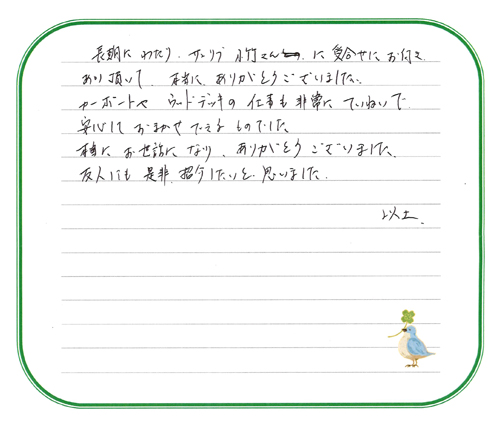 長期にわたり、サンリブ 小竹さん に 打合せに お付き
あい頂いて、本当に ありがとうございました。
カーポートや ウッドデッキの 仕事も 非常に ていねいで
安心して おまかせ できる ものでした。
本当に お世話に なり、ありがとう ございました。
友人にも 是非、紹介したいと 思いました。
以上.